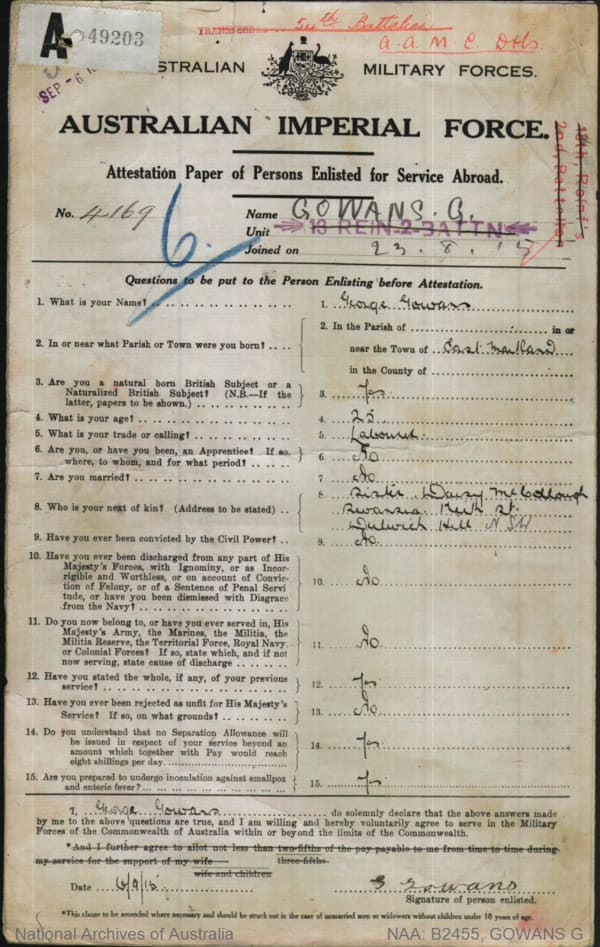 A 49203
TRANSFERRED 54th Battalion
A.A.M.C. Dtls
SEP -6
AUSTRALIAN MILITARY FORCES.
AUSTRALIAN IMPERIAL FORCE.
18th Reinf's
2nd Battalion
Attestation Paper of Persons Enlisted for Service Abroad.
No. 4169
6.
Name GOWANS. G.
Unit 13 REIN-2-BATTN
Joined on 23.8.15
Questions to be put to the Person Enlisting before Attestation.
1. What is your Name? 1. George Gowans
2. In or near what Parish or Town were you born? 2. In the Parish of in or
near the Town of East Maitland
in the County of
3. Are you a natural born British Subject or a
Naturalized British Subject? (N.B.—If the
latter, papers to be shown.) 3. Yes
4. What is your age? 4. 25
5. What is your trade or calling? 5. Labourer.
6. Are you, or have you been, an Apprentice? If so,
where, to whom, and for what period? 6. No
7. Are you married? 7. No
8. Who is your next of kin? (Address to be stated) 8 Sister Daisy McCollough
Swansea Keith St.
Dulwich Hill NSW
9. Have you ever been convicted by the Civil Power? 9. No
10. Have you ever been discharged from any part of His
Majesty's Forces, with Ignominy, or as Incor-
rigible and Worthless, or on account of Convic-
tion of Felony, or of a Sentence of Penal Servi
tude, or have you been dismissed with Disgrace
from the Navy? 10. No
11. Do you now belong to, or have you ever served in, His
Majesty's Army, the Marines, the Militia, the
Militia Reserve, the Territorial Force, Royal Navy
or Colonial Forces? If so, state which, and if not
now serving, state cause of discharge 11. No
12. Have you stated the whole, if any, of your previous
service? 12. Yes
13. Have you ever been rejected as unfit for His Majesty's
Service? If so, on what grounds? 13. No
14. Do you understand that no Separation Allowance will
be issued in respect of your service beyond an
amount which together with Pay would reach
eight shillings per day. 14. Yes
15. Are you prepared to undergo inoculation against smallpox
and enteric fever? 15. Yes
I, George Gowans do solemnly declare that the above answers made
by me to the above questions are true, and I am willing and hereby voluntarily agree to serve in the Military
Forces of the Commonwealth of Australia within or beyond the limits of the Commonwealth.
*And I further agree to allot not less than two-fifths of the pay payable to me from time to time during
my service for the support of my wife three-fifths.
wife and children
Date 6/9/15 G Gowans
Signature of person enlisted.
*This clause to be amended where necessary and should be struck out in the case of unmarried men or widowers without children under 16 years of age.
National Archives of Australia NAA: B2455, GOWANS G